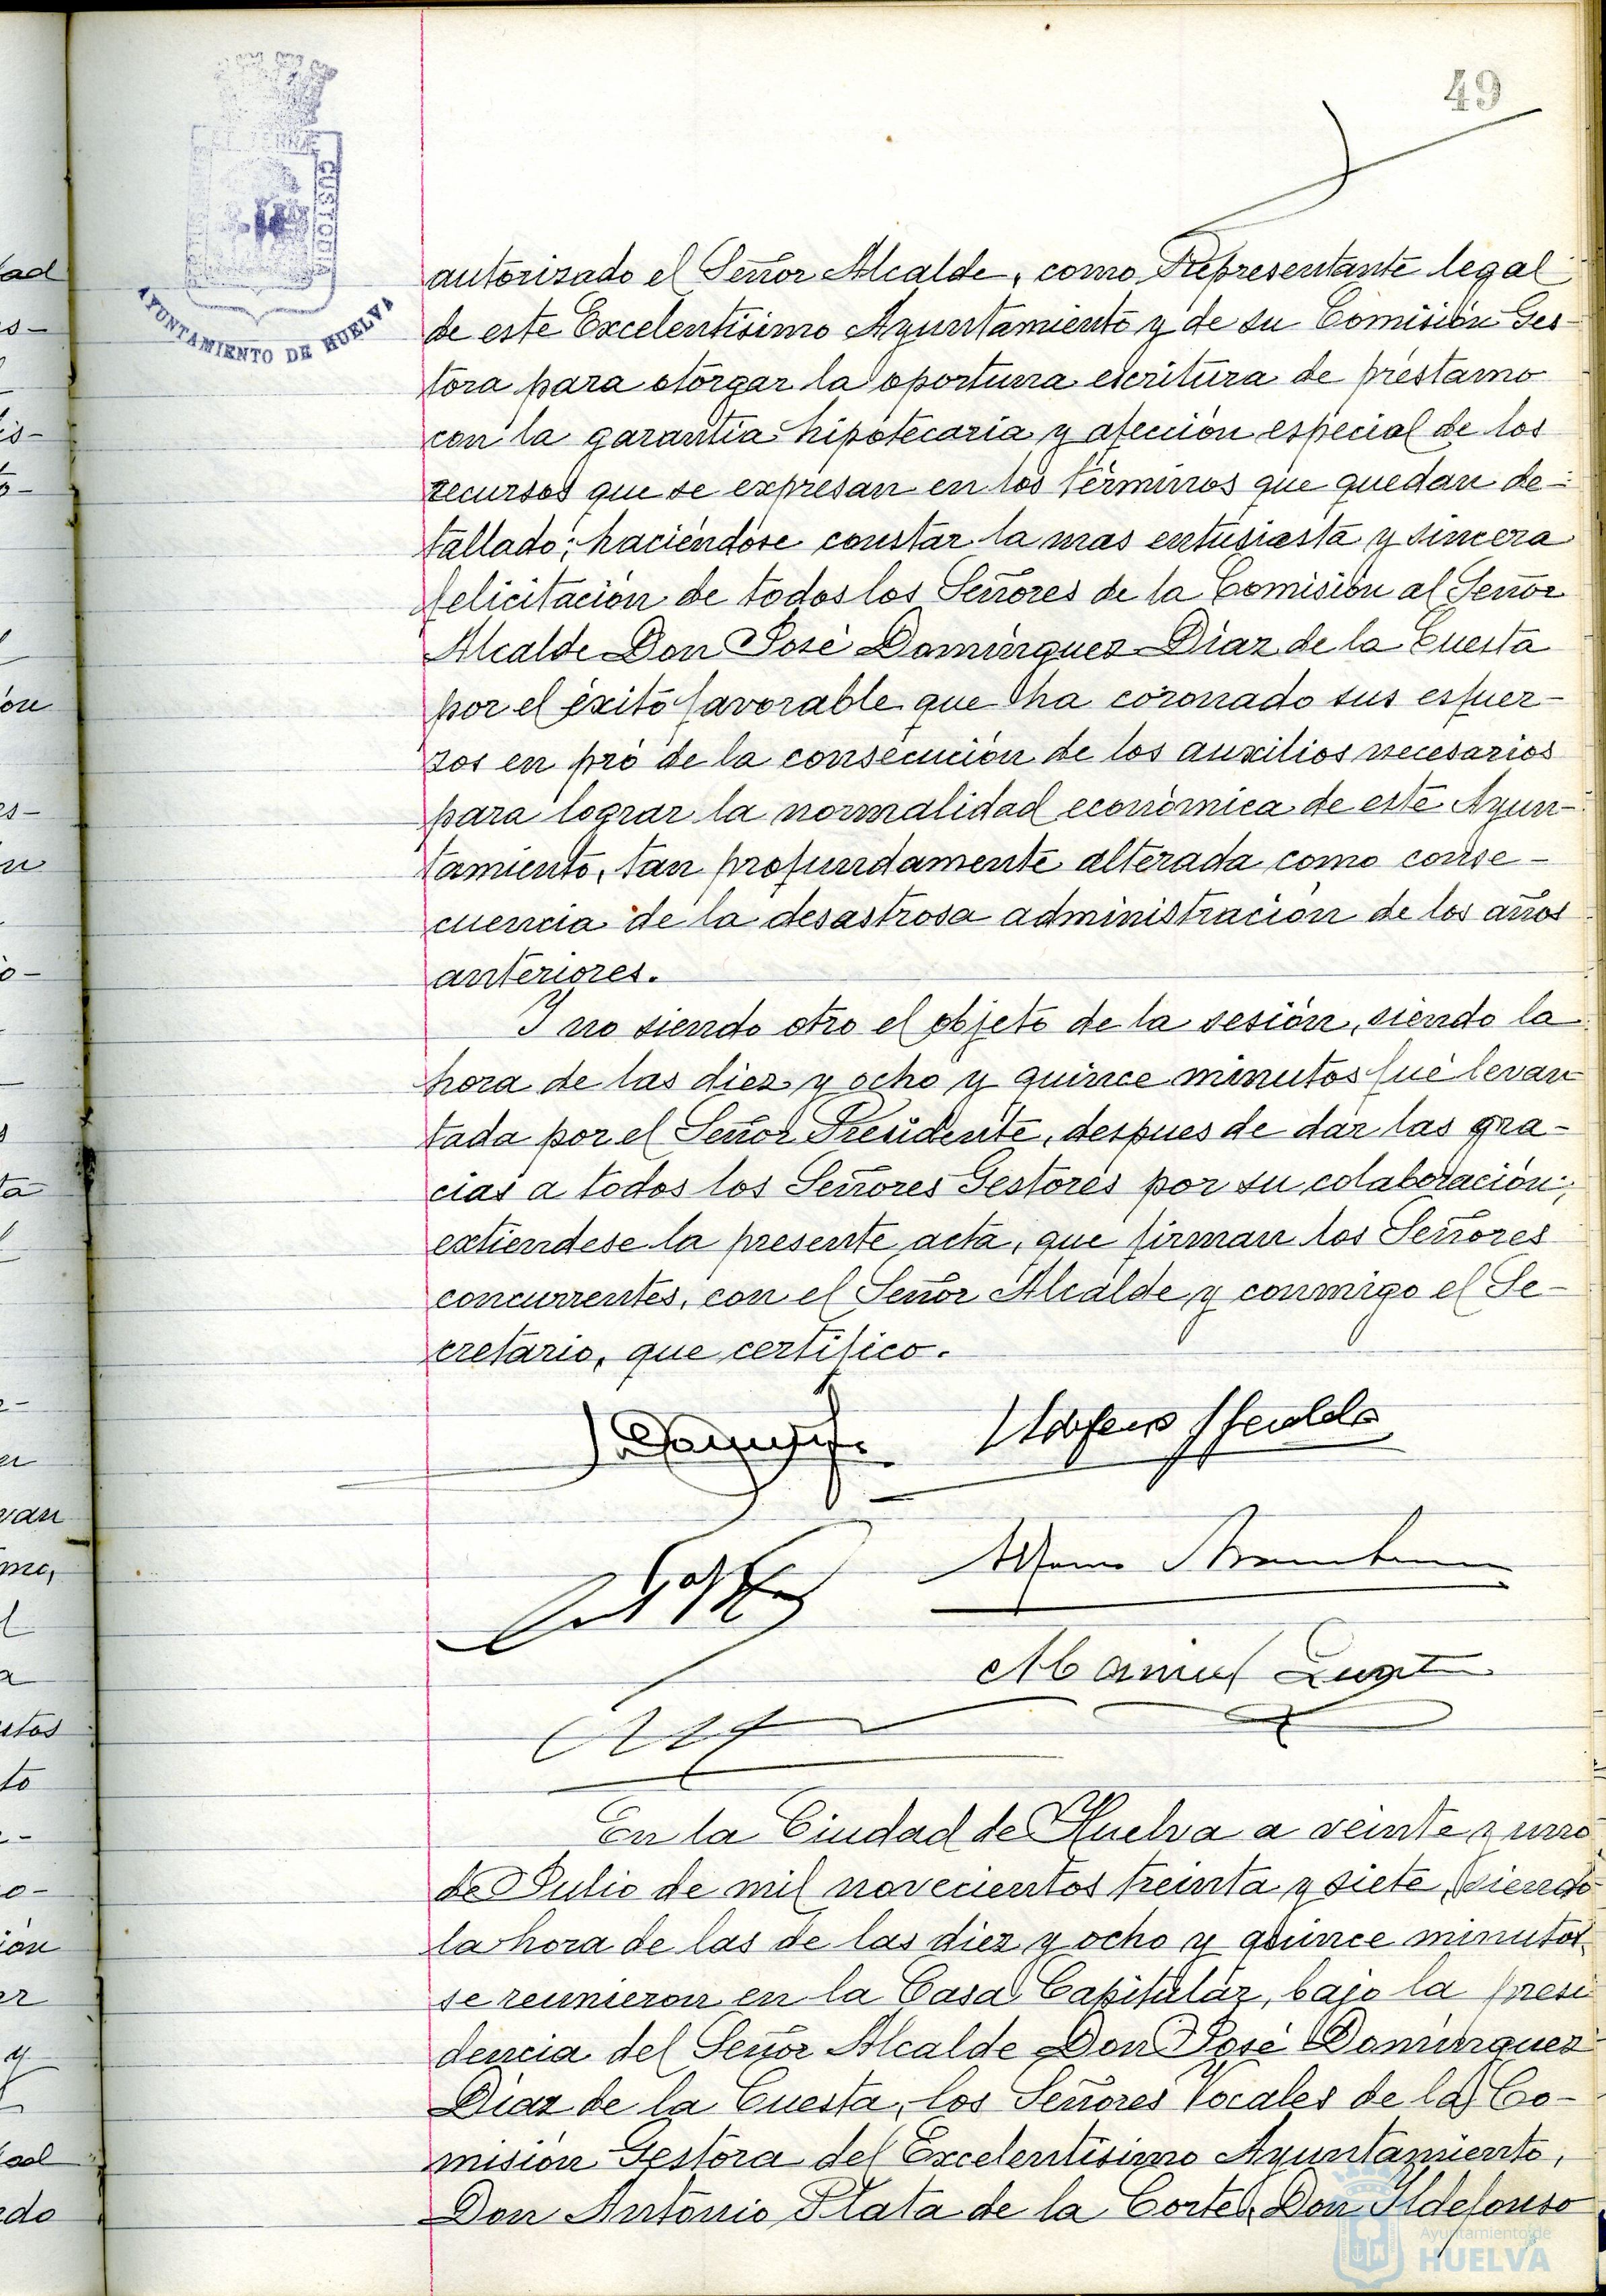 49
CUSTODI
AYUNTAMIENTO DE HUELVA
autorizado el Señor Alcalde, como Representante legal
de este Excelentísimo Ayuntamiento y de su Comisión Ges-
tora para otorgar la oportuna escritura de préstamo
con la garantía hipotecaria y afección especial de los
recursos que se expresan en los términos que quedan de-
tallado; haciéndose constar la mas entusiasta y sincera
felicitación de todos los Señores de la Comisión al Señor
Alcalde Don José Domínguez Díaz de la Cuesta
por el éxito favorable que ha coronado sus esfuer-
zos en pró de la consecución de los auxilios necesarios
para lograr la normalidad económica de este Ayun-
tamiento, tan profundamente alterada como conse-
cuencia de la desastrosa administración de los años
anteriores.
Y no siendo otro el objeto de la sesión, siendo la
hora de las diez y ocho y quince minutos fué levan
tada por el Señor Presidente, despues de dar las gra-
cias a todos los Señores Gestores por su colaboración;
extiendese la presente acta, que firman los Señores
concurrentes, con el Señor Alcalde y conmigo el Se-
cretario, que certifico.
Manuel
En la Ciudad de Huelva a veinte y uno
de Julio de mil novecientos treinta y siete, siendo
la hora de las de las diez y ocho y quince minutos
se reunieron en la Casa Capitular, bajo la presi
dencia del Señor Alcalde Don José Domínguez
Díaz de la Cuesta, los Señores Vocales de la Co-
misión Gestora del Excelentísimo Ayuntamiento,
Don Antonio Plata de la Corte, Don Ildefonso
Ayuntamiento de
HUELVA